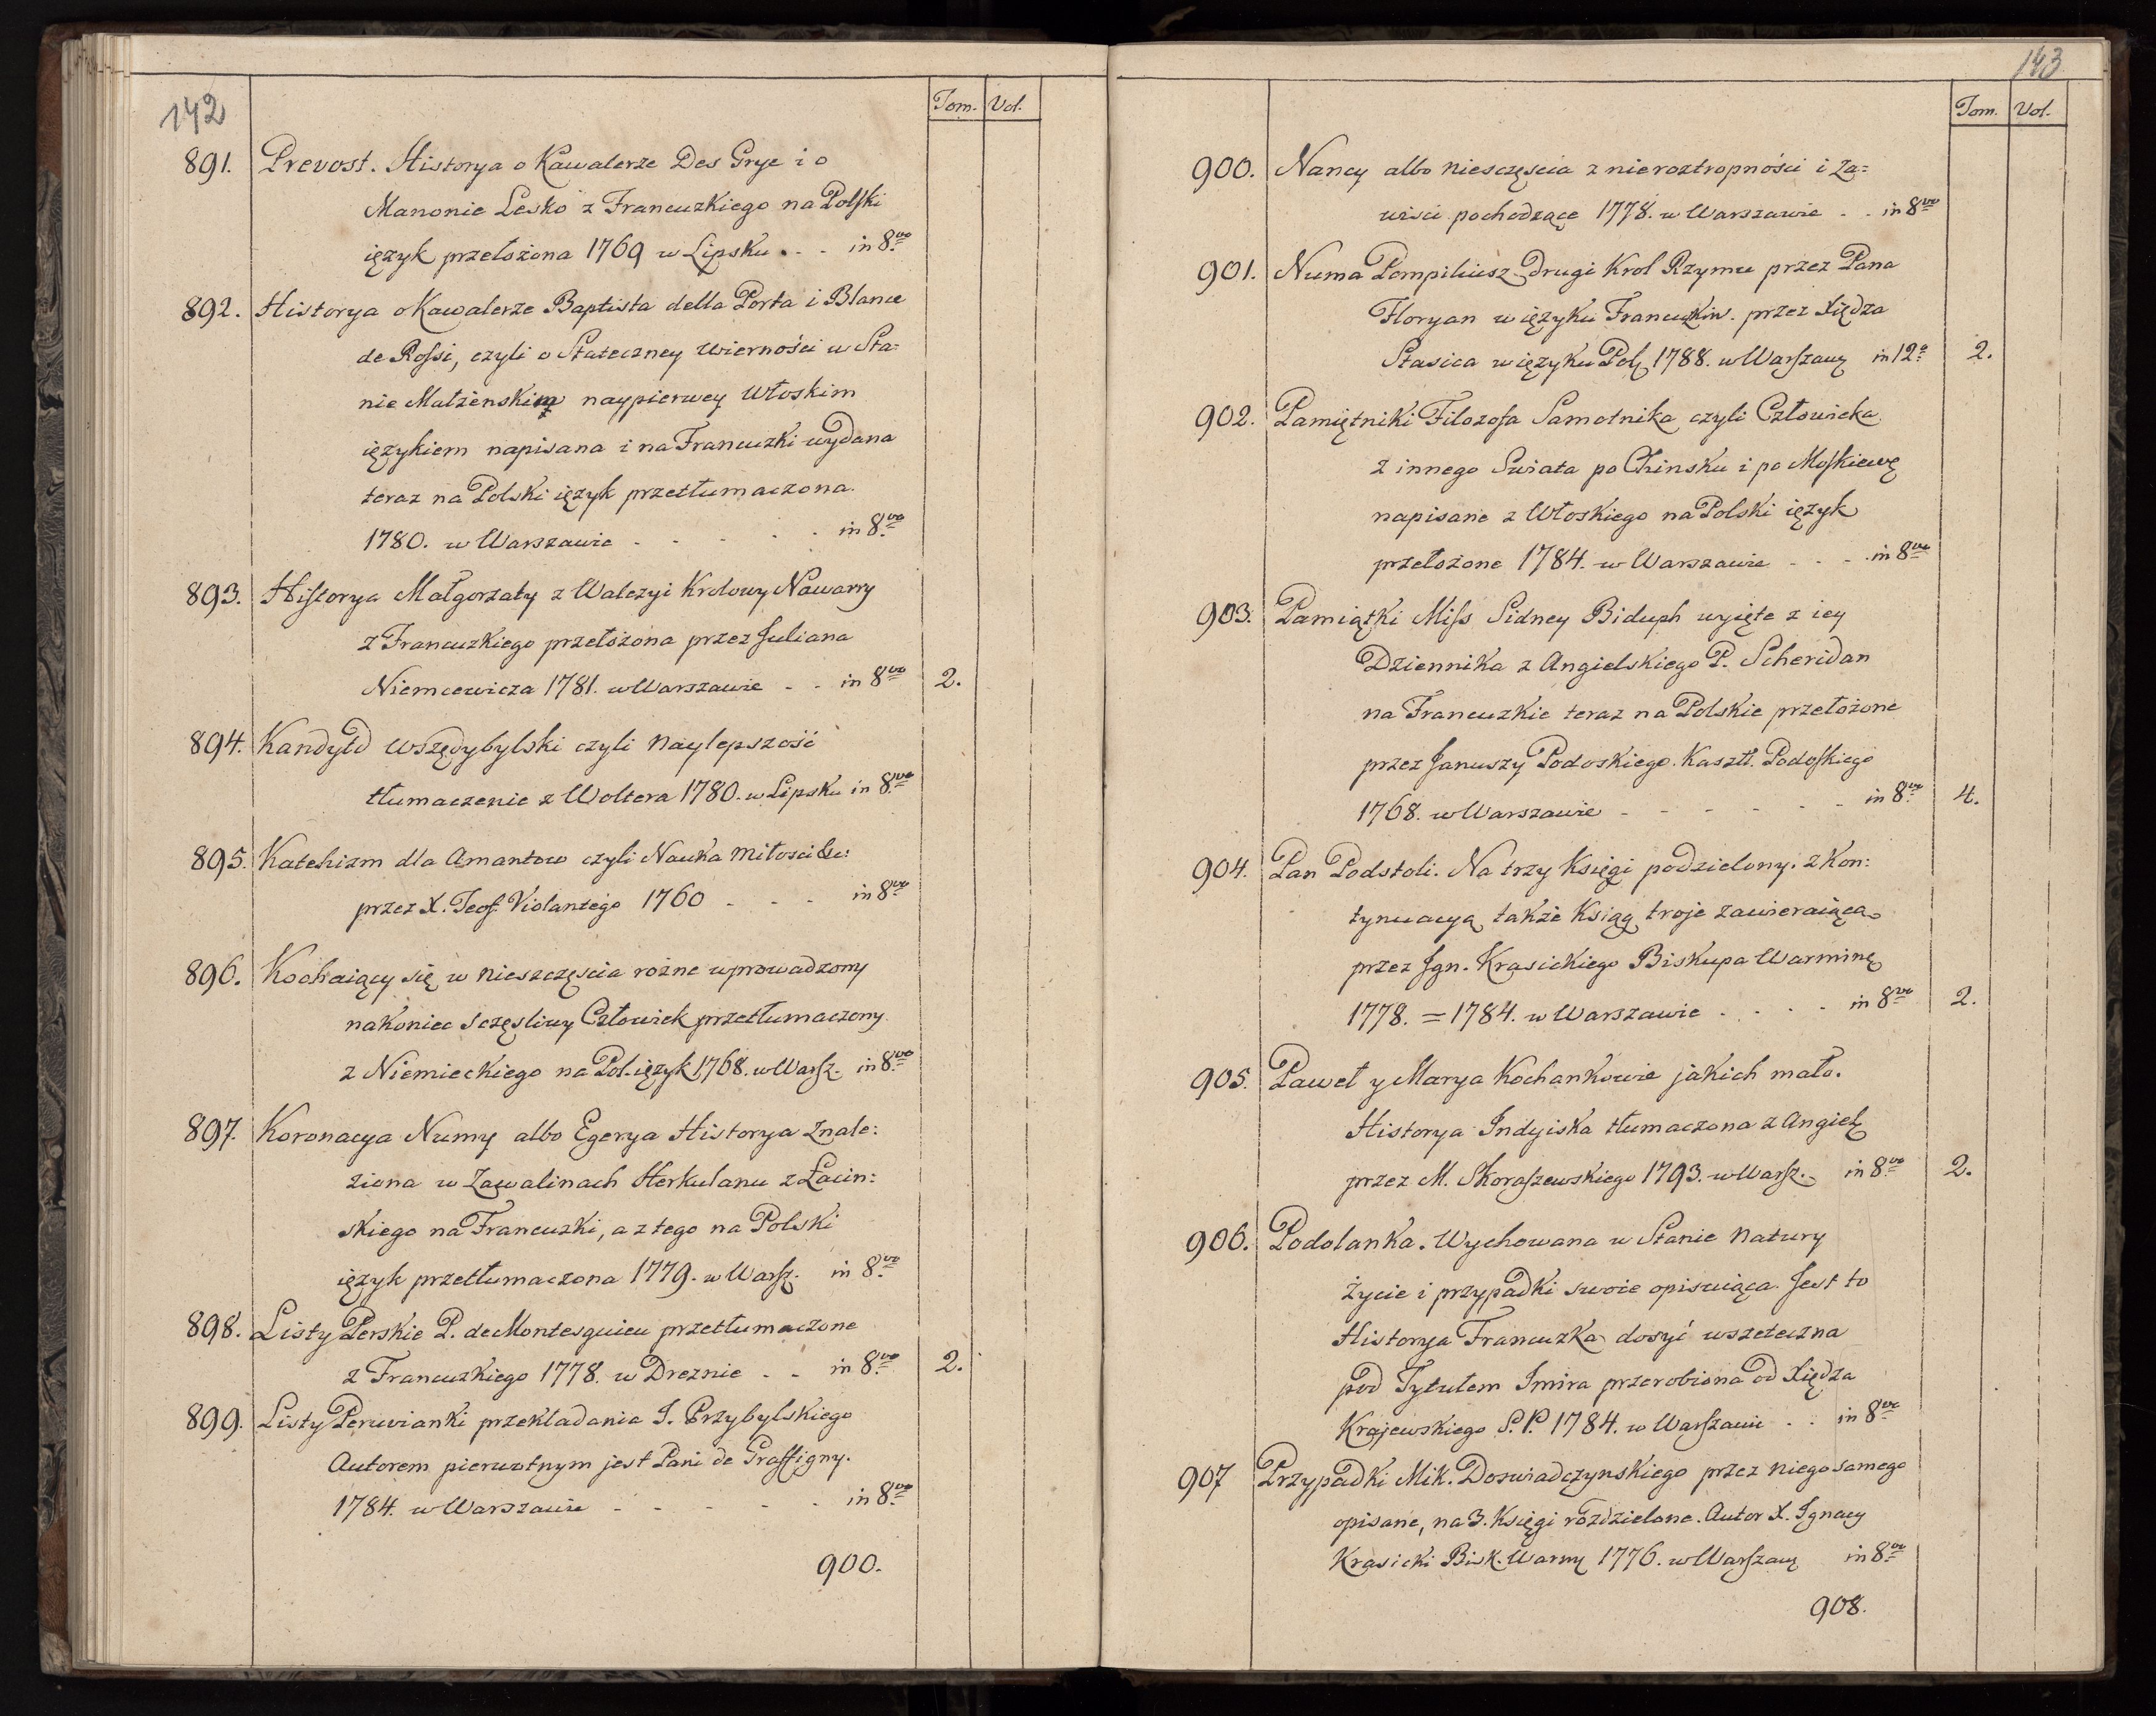 142
Tom. Vol.
891. Prevost. Historya o Kawalerze Des Grye i o
Manonie Lesko z Francuzkiego na Polski
ięzyk przełożona 1769 w Lipsku . . . in 8.vo
892. Historya o Kawalerze Baptista della Porta i Blance
de Rossi, czyli o Stateczney wierności w Sta=
nie Małżenskim naypierwey Włoskim
ięzykiem napisana i na Francuzki wydana
teraz na Polski ięzyk przetłumaczona.
1780. w Warszawie . . . . . in 8.vo
893. Historya Małgorzaty z Walezyi Krolowy Nawarry
z Francuzkiego przełożona przez Juliana
Niemcewicza 1781. w Warszawie . . in 8vo 2.
894. Kandyd wszędybylski czyli Naylepszość
tłumaczenie z Woltera 1780. w Lipsku in 8.vo
895. Katehizm dla Amantow czyli Nauka miłosci &c:
przez X. Teof. Violantego 1760 . . . in 8vo
896. Kochaiący się w nieszczęscia rożne wprowadzony
nakoniec sczęsliwy Człowiek przetłumaczony
z Niemieckiego na Pol. ięzyk 1768. w Warsz. in 8.vo
897. Koronacya Numy albo Egerya Historya znale:
ziona w Zawalinach Herkulanu z Łacin:
skiego na Francuzki, a z tego na Polski
ięzyk przetłumaczona 1779. w Warsz. in 8.vo
898. Listy Perskie P. de Montesquieu przetłumaczone
z Francuzkiego 1778. w Dreznie . . in 8.vo 2.
899. Listy Peruvianki przekładania J. Przybylskiego
Autorem pierwotnym jest Pani de Graffigny.
1784. w Warszawie . . . . . in 8.vo
900.
143
Tom. Vol.
900. Nancy albo niesczęscia z nieroztropności i za=
wisci pochodzące 1778. w Warszawie . . in 8vo
901. Numa Pompiliusz Drugi Krol Rzymu przez Pana
Floryan w ięzyku Francuzkim. przez Xiędza
Stasica w ięzyku Pol. 1788. w Warszawę in 12o 2.
902. Pamiętniki Filozofa Samotnika czyli Człowieka
z innego Swiata po Chinsku i po Moskiewę
napisane z Włoskiego na Polski ięzyk
przełożone 1784. w Warszawie . . . in 8vo
903. Pamiątki Miss Sidney Biduph wyięte z iey
Dziennika z Angielskiego P. Scheridan
na Francuzkie teraz na Polskie przełożone
przez Januszy Podoskiego. Kasztl. Podoskiego
1768. w Warszawie . . . . . . in 8.vo 4.
904. Pan Podstoli. Na trzy Księgi podzielony. z kon:
tynuacyą także Ksiąg troje zawieraiącą
przez Ign. Krasickiego Biskupa Warminę
1778. = 1784. w Warszawie . . . . in 8vo 2.
905. Paweł y Marya Kochankowie jakich mało.
Historya Indyiska tłumaczona z Angielę
przez M. Skoraszewskiego 1793. w Warsz. in 8vo 2.
906. Podolanka. Wychowana w Stanie Natury
życie i przypadki swoie opisuiąca. Jest to
Historya Francuzka dosyć wszeteczna
pod Tytułem Imira przerobiona od Xiędza
Krajewskiego S. P. 1784. w Warszawie . . in 8vo
907 Przypadki Mik. Doswiadczynskiego przez niego samego
opisane, na 3. Księgi rozdzielone. Autor X. Ignacy
Krasicki Bisk. Warmę 1776. w Warszawę in 8vo
908.